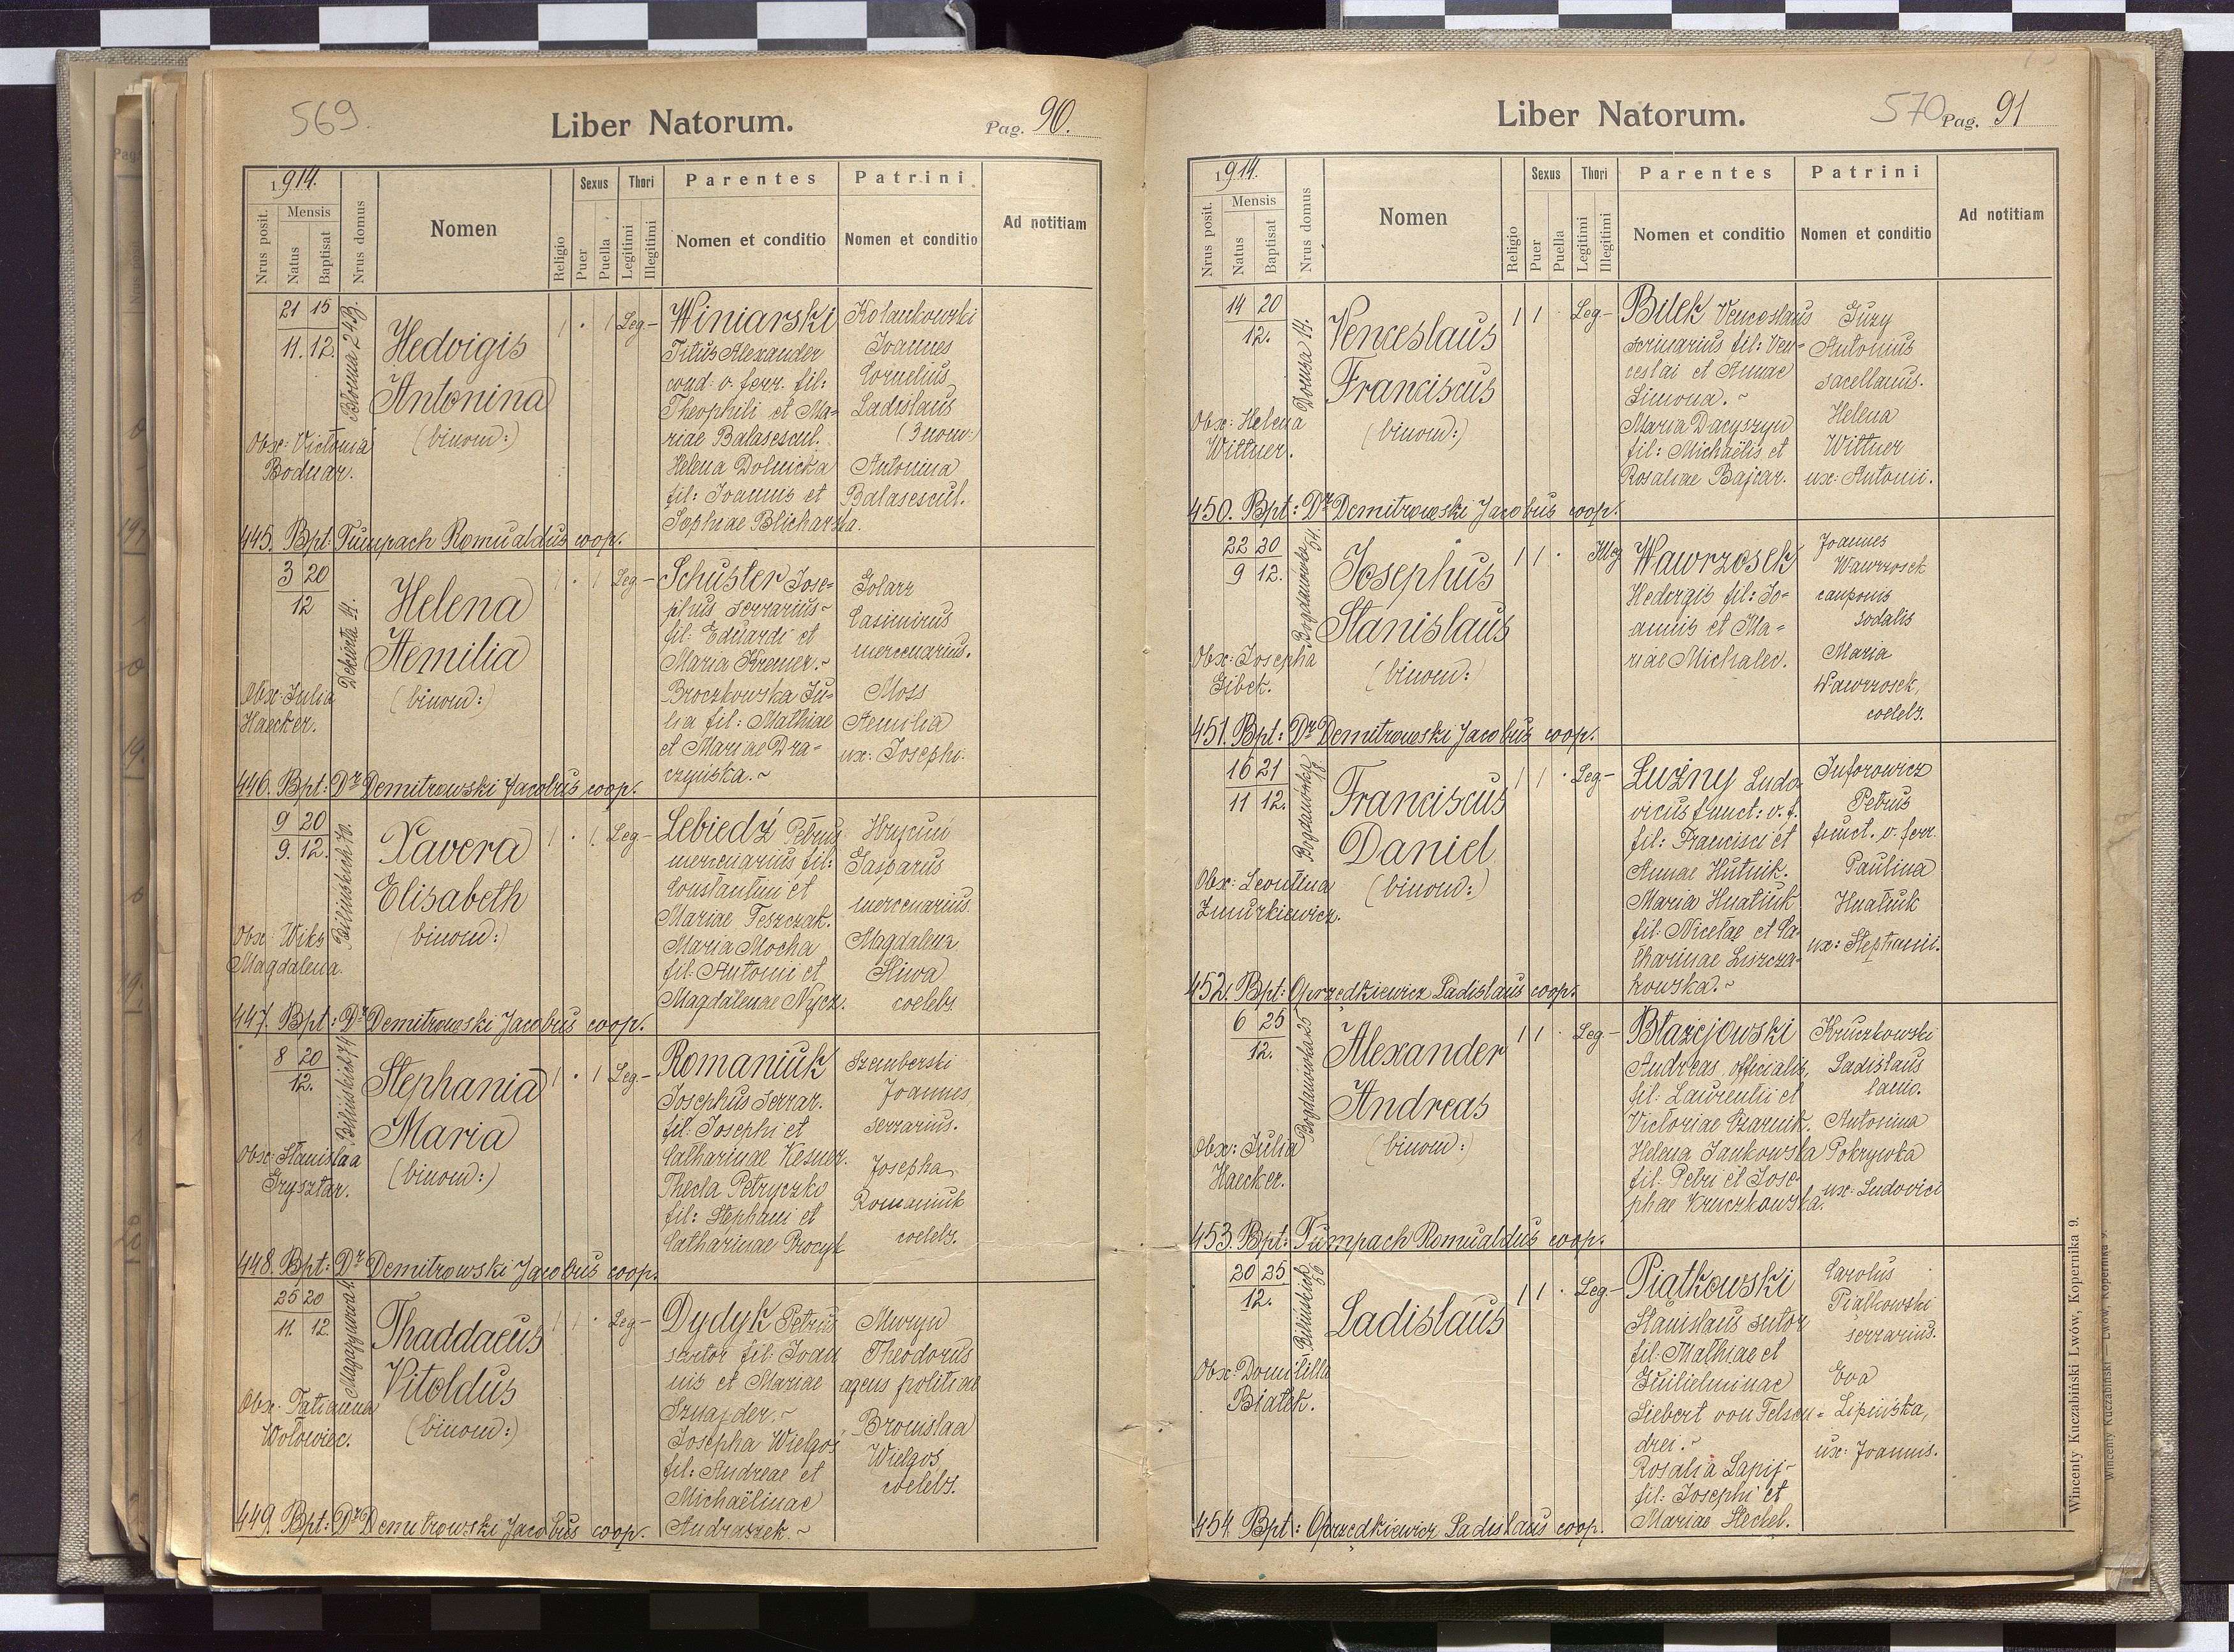 569.
Liber Natorum.
Pag. 90.
1914.
Nrus posit.
Mensis
Natus
Baptisat
Nrus domus
Nomen
Religio
Sexus
Puer
Puella
Thori
Legitimi
Illegitimi
Parentes
Nomen et conditio
Patrini
Nomen et conditio
Ad notitiam
21 15
11. 12.
Hedvigis
Antonina
(binom:)
1 · 1 Leg-
Obx: Victoria
Bodnar.
Winiarski
Titus Alexander
cond: v. ferr. fil:
Theophili et Ma-
riae Balasescul.
Helena Dolnicka
fil: Joannis et
Sophiae Blicharska.
Kolankowski
Joannes
Cornelius
Ladislaus
(3 nom:)
Antonina
Balasescul.
445. Bpt. Tumpach Romualdus coop.
3 20
12
Dekierta 14.
Helena
Aemilia
(binom:)
1 · 1 Leg-
Obx: Julia
Haecker.
Schuster Jose-
phus serrarius-
fil: Eduardi et
Maria Kremer.~
Broczkowska Ju-
lia fil: Mathiae
et Mariae Dra-
czyńska.~
Golarz
Casimirus
mercenarius.
Moss
Aemilia
ux: Josephi.
446. Bpt: Dr Demitrowski Jacobus coop.
9 20
9. 12.
Bilińskich 70.
Xavera
Elisabeth
(binom:)
1 · 1. Leg-
Obx: Wiks
Magdalena.
Lebiedź Petrus
mercenarius fil:
Constantini et
Mariae Teszczak.
Maria Mocha
fil: Antonii et
Magdalenae Nycz.
Hrycun
Gasparus
mercenarius.
Magdalena
Sliwa
coelebs.
447. Bpt: Dr Demitrowski Jacobus coop.
8 20
12.
Bilińskich 74
Stephania
Maria
(binom:)
1 · 1 Leg-
Obx: Stanislaa
Grysztar.
Romaniuk
Josephus serrar.
fil: Josephi et
Catharinae Kesner.
Thecla Petryczko
fil: Stephani et
Catharinae Procyk
Szemberski
Joannes
serrarius.
Josepha
Romaniuk
coelebs.
448. Bpt: Dr Demitrowski Jacobus coop.
25 20
11. 12.
Thaddaeus
Vitoldus
(binom:)
1 1 · Leg-
Obx: Tatianna
Wołowiec.
Dydyk Petrus
sartor fil: Joan
nis et Mariae
Sznajder.~
Josepha Wielgos
fil: Andreae et
Michaëlinae
Andraszek.~
Mwryn
Theodorus
agens politiae
Bronislaa
Wielgos
coelebs.
449. Bpt: Dr Demitrowski Jacobus coop.
Liber Natorum.
570
Pag. 91
1914.
Nrus posit.
Mensis
Natus
Baptisat
Nrus domus
Nomen
Religio
Sexus
Puer
Puella
Thori
Legitimi
Illegitimi
Parentes
Nomen et conditio
Patrini
Nomen et conditio
Ad notitiam
14 20
12.
Domsa 14.
Venceslaus
Franciscus
(binom:)
1 1 · Leg-
Obx: Helena
Wittner.
Bilek Venceslaus
scrinarius fil: Ven-
ceslai et Annae
Simona.~
Maria Dacyszyn
fil: Michaëlis et
Rosaliae Bajcar.
Guzy
Antonius
sacellanus.
Helena
Wittner
ux: Antonii.
450. Bpt: Dr Demitrowski Jacobus coop.
22 20
9 12.
Bogdanówka 54.
Josephus
Stanislaus
(binom:)
1 1 · Illeg
Obx: Josepha
Gibek.
Wawrzosek
Hedvigis fil: Jo-
annis et Ma-
riae Michalec.
Joannes
Wawrzosek
cauponis
sodalis
Maria
Wawrzosek,
coelebs.
451. Bpt: Dr Demitrowski Jacobus coop.
16 21
11 12.
Bogdanówka 18.
Franciscus
Daniel
(binom:)
1 1 · Leg-
Obx: Leontina
Zmurkiewicz.
Łużny Ludo-
vicus funct: v. f.
fil: Francisci et
Annae Hutnik.
Maria Hnatiuk
fil: Nicetae et Ca-
tharinae Liszcza-
kowska.~
Juforowicz
Petrus
funct. v. ferr.
Paulina
Hnatiuk
ux: Stephanii.
452. Bpt: Oprzędkiewicz Ladislaus coop.
6 25
12.
Bogdanówka 25
Alexander
Andreas
(binom:)
1 1 · Leg-
Obx: Julia
Haecker.
Błażejowski
Andreas, officialis,
fil: Laurentii et
Victoriae Czarnik.
Helena Jankowska
fil: Petri et Jose-
phae Kruczkowska.
Kruczkowski
Ladislaus
lanio.
Antonina
Pokrywka
ux: Ludovici
453. Bpt: Tumpach Romualdus coop.
20 25
12.
Ladislaus
1 1 · Leg-
Obx: Domitilla
Białek.
Piątkowski
Stanislaus sutor
fil: Mathiae et
Guilielminae
Siebert von Felsen-
drei.~
Rosalia Łapij-
fil: Josephi et
Mariae Steckel.
Carolus
Piątkowski
serrarius.
Eva
Lipińska,
ux: Joannis.
454. Bpt: Oprzędkiewicz Ladislaus coop.
Wincenty Kuczabiński Lwów, Kopernika 9.
Wincenty Kuczabiński — Lwów, Kopernika 9.